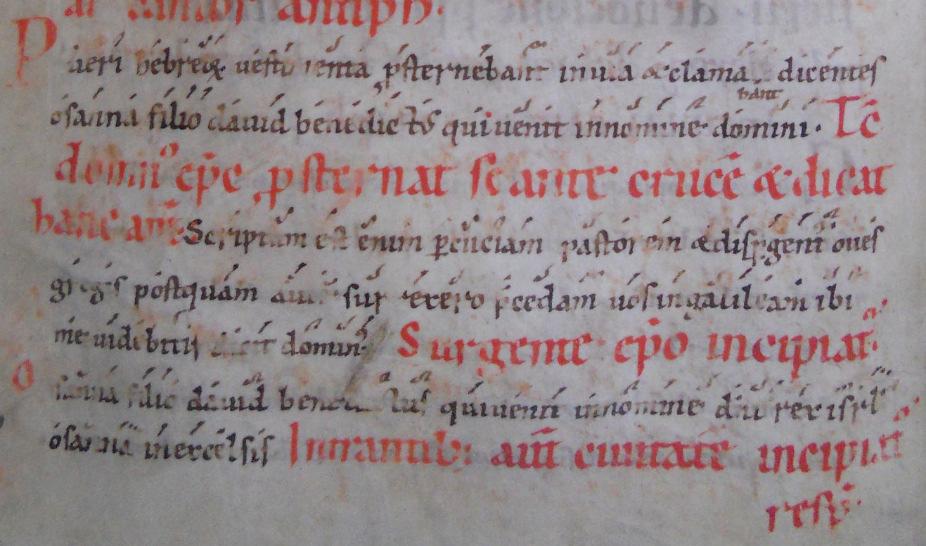 antiph.
Pueri hebreoꝝ vestimenta ꝓsternebant in via & clama dicentes
bant
osanna filio david benedictus qui venit in nomine domini. Tc̄
domn̄o ep̄c ꝓsternat se ante crucē & dicat
hanc an̄.
Scriptum est enim percuciam pastorem & dispgent̄ oves
gregis postquam aut̄ surrexero p̄cedam vos in galileam ibi
me videbitis dicit dominꝰ
Surgente ep̄o incipiat.
Osanna filio david benedictus qui venit in nomine dn̄i rex isrl̄
osanna in excelsis Intrantibꝫ aut̄ civitatē incipiat
resp̄.